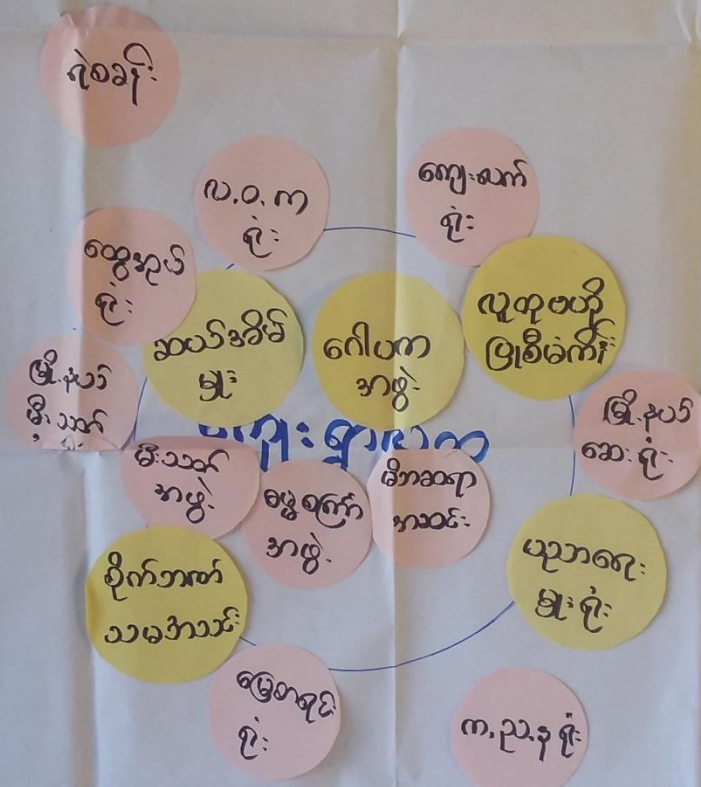 ရဲစခန်း
လ.ဝ.က
ရုံး
ကျေးလက်
ရုံး
ထွေအုပ်
ရုံး
ဆယ်အိမ်
မှူး
ဂေါပက
အဖွဲ့
လူထုဗဟို
ပြုစီမံကိန်း
မြို့နယ်
မီးသတ်
မြို့နယ်
ဆေးရုံး
မီးသတ်
အဖွဲ့
ဓမ္မစကြာ
အဖွဲ့
မိဘဆရာ
အသင်း
စိုက်ဘဏ်
သမအသင်း
ပညာရေး
မှူးရုံး
မြေစာရင်း
ရုံး
က.ည.န ရုံး